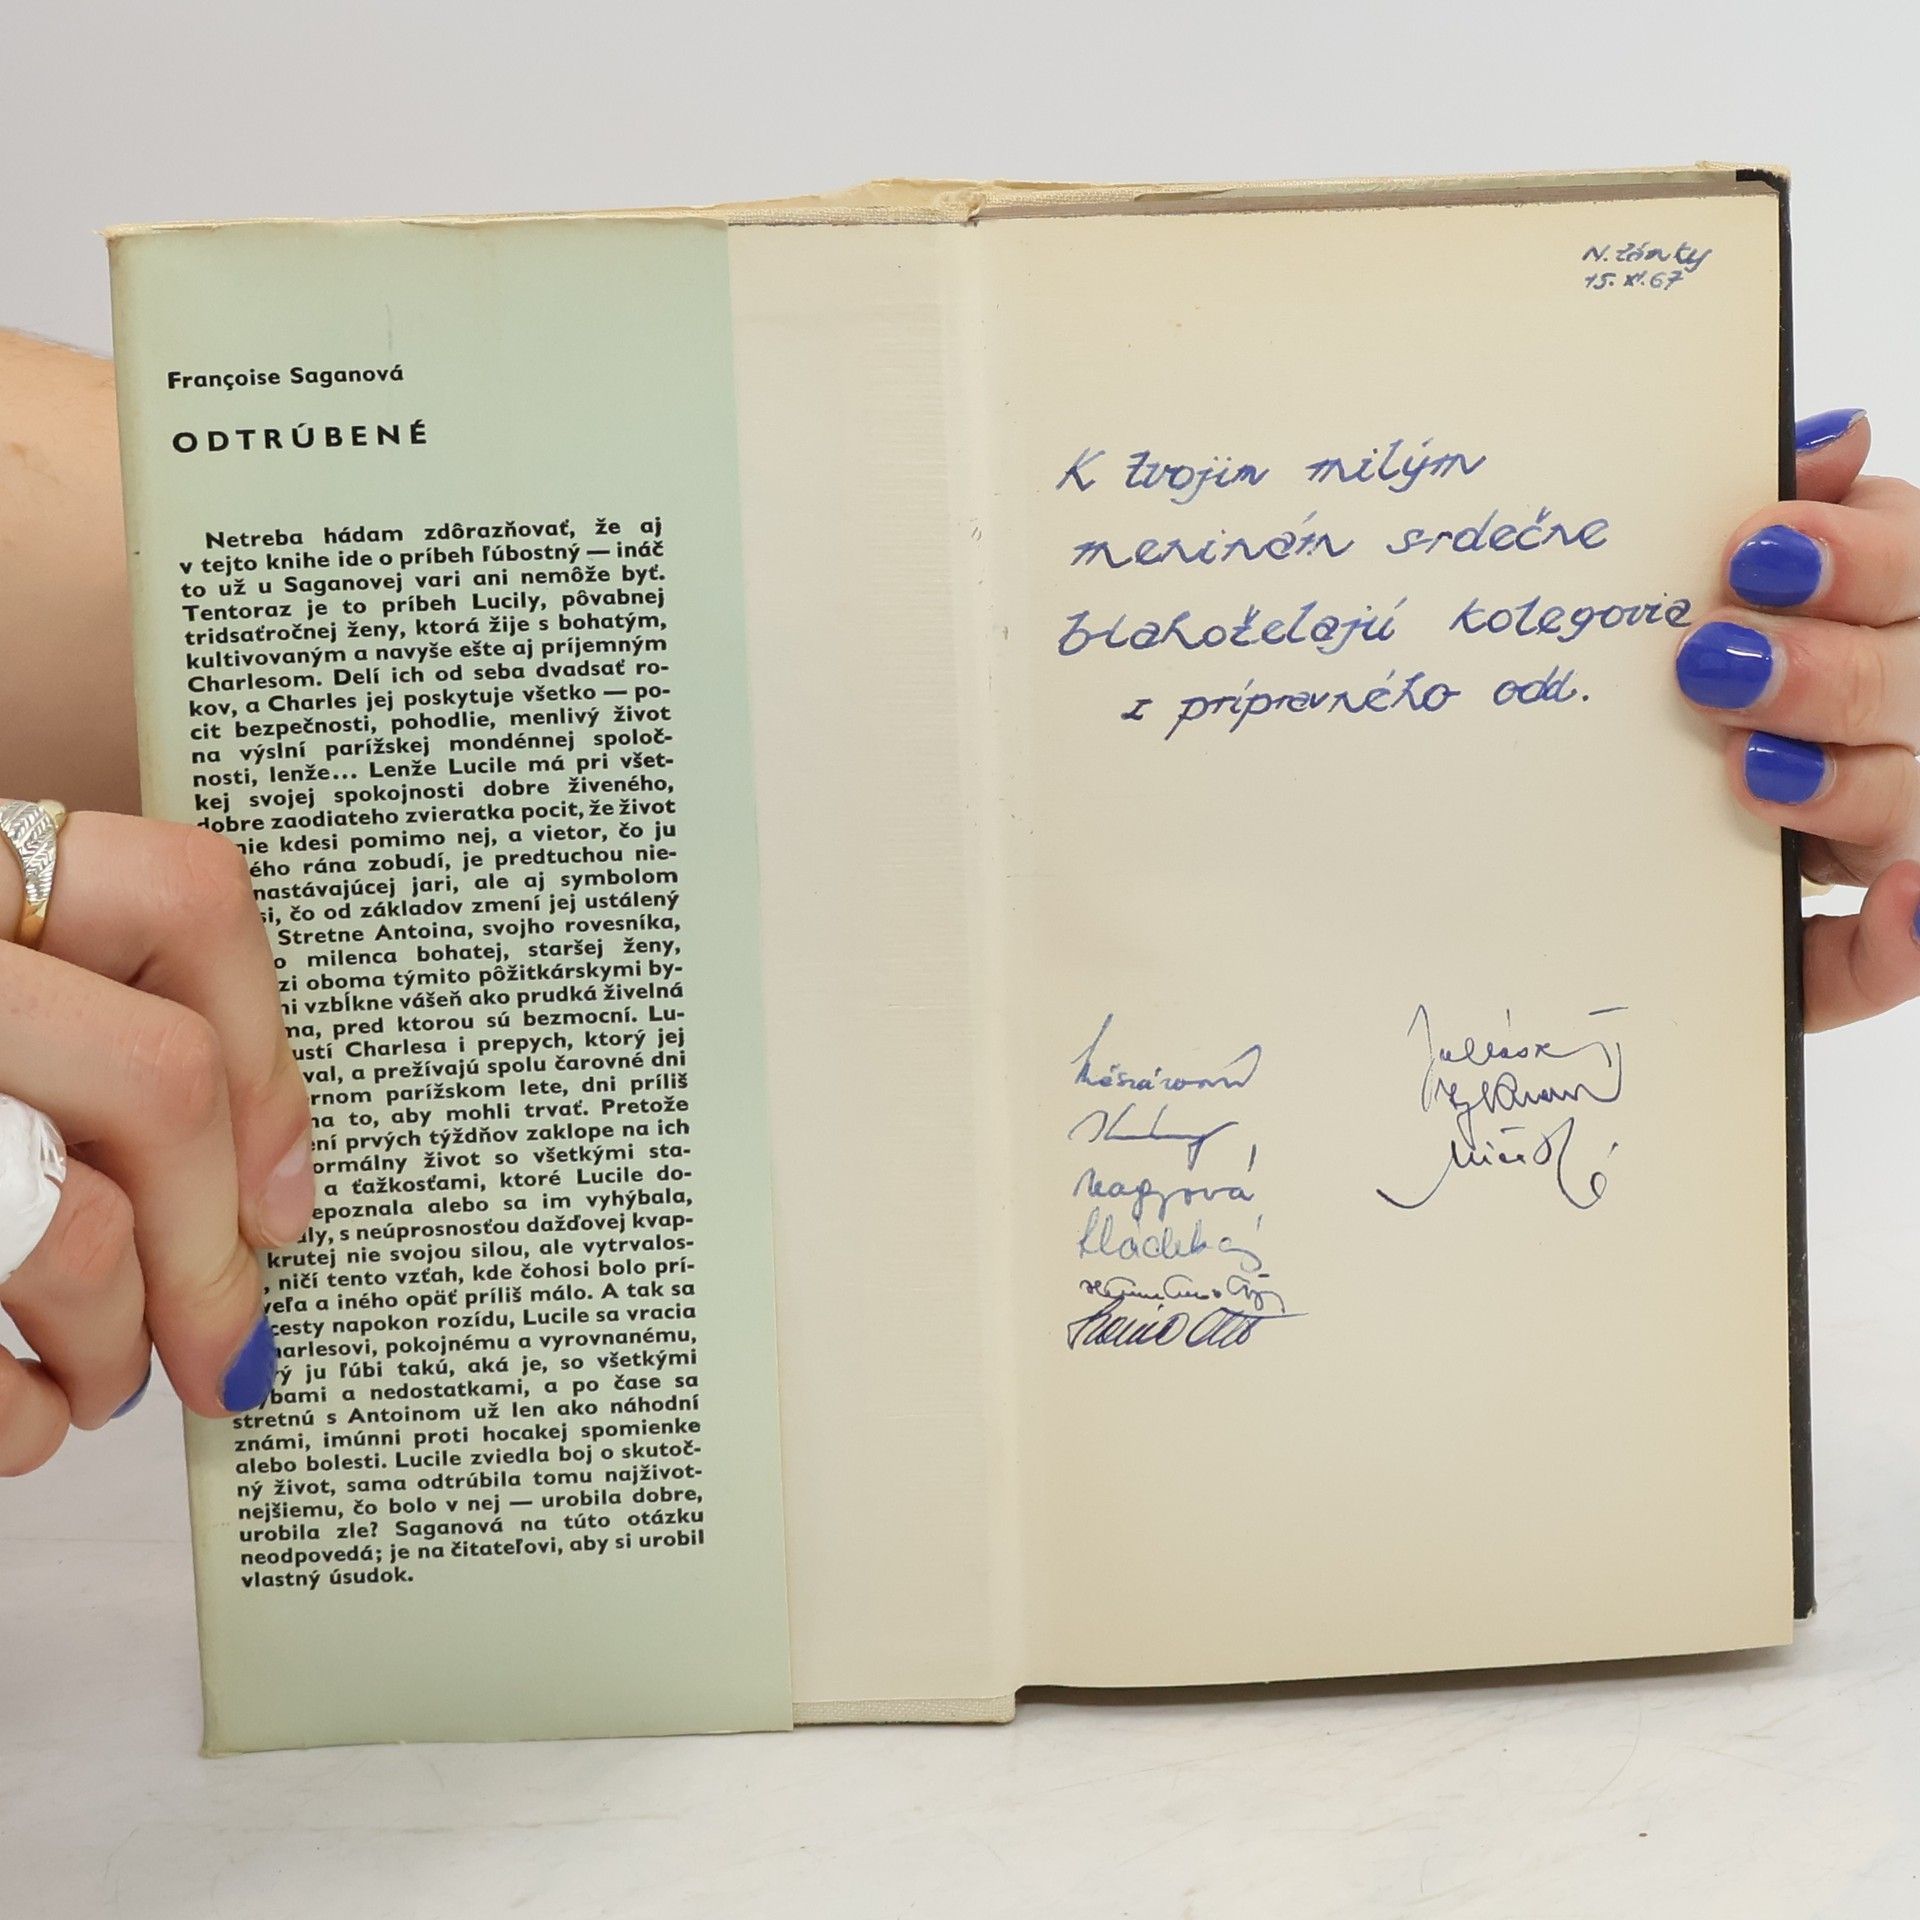 Françoise Saganová
ODTRÚBENÉ
Netreba hádam zdôrazňovať, že aj
v tejto knihe ide o príbeh ľúbostný — ináč
to už u Saganovej vari ani nemôže byť.
Tentoraz je to príbeh Lucily, pôvabnej
tridsaťročnej ženy, ktorá žije s bohatým,
kultivovaným a navyše ešte aj príjemným
Charlesom. Delí ich od seba dvadsať ro-
kov, a Charles jej poskytuje všetko — po-
cit bezpečnosti, pohodlie, menlivý život
na výslní parížskej mondénnej spoloč-
nosti, lenže... Lenže Lucile má pri všet-
kej svojej spokojnosti dobre živeného,
dobre zaodiateho zvieratka pocit, že život
nie kdesi pomimo nej, a vietor, čo ju
ého rána zobudí, je predtuchou nie-
nastávajúcej jari, ale aj symbolom
si, čo od základov zmení jej ustálený
Stretne Antoina, svojho rovesníka,
o milenca bohatej, staršej ženy,
zi oboma týmito pôžitkárskymi by-
mi vzbĺkne vášeň ako prudká živelná
ma, pred ktorou sú bezmocní. Lu-
ustí Charlesa i prepych, ktorý jej
val, a prežívajú spolu čarovné dni
rnom parížskom lete, dni príliš
na to, aby mohli trvať. Pretože
ení prvých týždňov zaklope na ich
ormálny život so všetkými sta-
a ťažkosťami, ktoré Lucile do-
epoznala alebo sa im vyhýbala,
aly, s neúprosnosťou dažďovej kvap-
krutej nie svojou silou, ale vytrvalos-
, ničí tento vzťah, kde čohosi bolo prí-
veľa a iného opäť príliš málo. A tak sa
cesty napokon rozídu, Lucile sa vracia
harlesovi, pokojnému a vyrovnanému,
rý ju ľúbi takú, aká je, so všetkými
ybami a nedostatkami, a po čase sa
stretnú s Antoinom už len ako náhodní
známi, imúnni proti hocakej spomienke
alebo bolesti. Lucile zviedla boj o skutoč-
ný život, sama odtrúbila tomu najživot-
nejšiemu, čo bolo v nej — urobila dobre,
urobila zle? Saganová na túto otázku
neodpovedá; je na čitateľovi, aby si urobil
vlastný úsudok.
N. Zámky
15. XI. 67
K tvojim milým
meninám srdečne
blahoželajú kolegovia
z prípravného odd.
Mészárosová
Nagyová
Sládeková